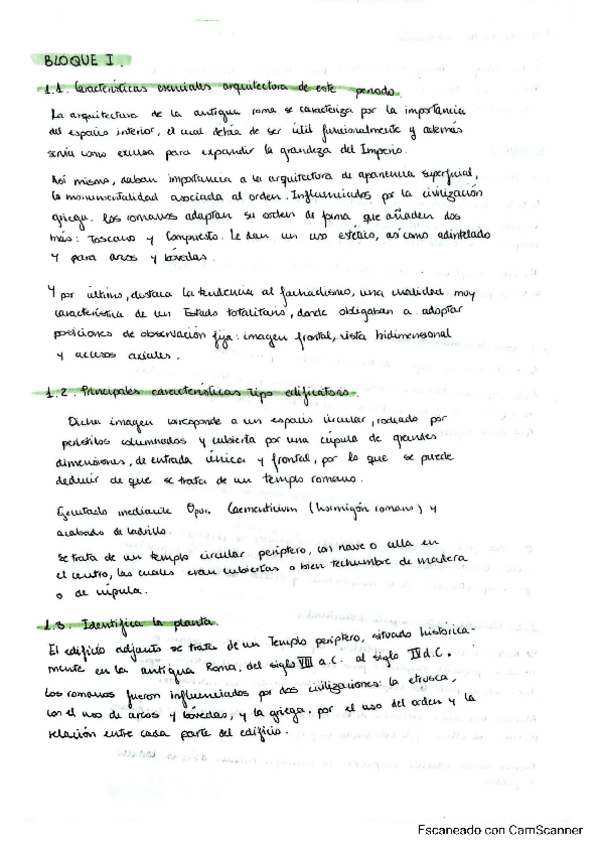 BLOQUE I.
1.1. Características esenciales arquitectura de este periodo.
La arquitectura de la antigua roma se caracteriza por la importancia
del espacio interior, el cual debía de ser útil funcionalmente y además
servía como excusa para expandir la grandeza del Imperio.
Así mismo, daban importancia a la arquitectura de apariencia superficial,
la monumentalidad asociada al orden. Influenciados por la civilización
griega. Los romanos adaptan su orden de forma que añaden dos
más: Toscano y Compuesto. Le dan un uso estético, así como adintelado
y para arcos y bóvedas.
Y por último, destaca la tendencia al fachadismo, una cualidad muy
característica de un Estado totalitario, donde obligaban a adoptar
posiciones de observación fija: imagen frontal, vista bidimensional
y accesos axiales.
1.2. Principales características tipo edificatorio.
Dicha imagen corresponde a un espacio circular, rodeado por
peristilos columnados y cubierta por una cúpula de grandes
dimensiones, de entrada única y frontal, por lo que se puede
deducir de que se trata de un templo romano.
Ejecutado mediante Opus Caementicium (hormigón romano) y
acabado de ladrillo.
Se trata de un templo circular períptero, con nave o cella en
el centro, las cuales eran cubiertas o bien techumbre de madera
o de cúpula.
1.3. Identifica la planta.
El edificio adjunto se trata de un Templo períptero, situado histórica-
mente en la antigua Roma, del siglo VIII a.C. al siglo IV d.C.
Los romanos fueron influenciados por dos civilizaciones: la etrusca,
con el uso de arcos y bóvedas, y la griega, por el uso del orden y la
relación entre cada parte del edificio.
Escaneado con CamScanner